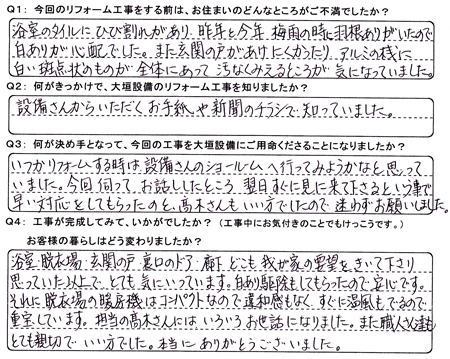 Q1：今回のリフォーム工事をする前は、お住まいのどんなところがご不満でしたか？
浴室のタイルにひび割れがあり、昨年と今年、梅雨の時に羽根ありがいたので
白ありが心配でした。また玄関の戸があけにくかったり、アルミの桟に
白い斑点状のものが全体にあって汚なくみえるところが気になっていました。
Q2：何がきっかけで、大垣設備のリフォーム工事を知りましたか？
設備さんからいただくお手紙や新聞のチラシで知っていました。
Q3：何が決め手となって、今回の工事を大垣設備にご用命くださることになりましたか？
いつかリフォームする時は設備さんのショールームへ行ってみようかなと思って
いました。今回伺って、お話ししたところ、翌日すぐに見に来て下さるという事で
早い対応をしてもらったのと、高木さんもいい方でしたので迷わずお願いしました。
Q4：工事が完成してみて、いかがでしたか？（工事中にお気付きのことでもけっこうです。）
お客様の暮らしはどう変わりましたか？
浴室、脱衣場、玄関の戸、裏口のドア、廊下、どこも我が家の要望をきいて下さり
思っていた以上で、とても気にいっています。白あり駆除もしてもらったので安心です。
それに脱衣場の暖房機はコンパクトなので違和感もなく、すぐに温風もでるので
重宝しています。担当の高木さんにはいろいろお世話になりました。また職人さん達も
とても親切でいい方でした。本当にありがとうございました。